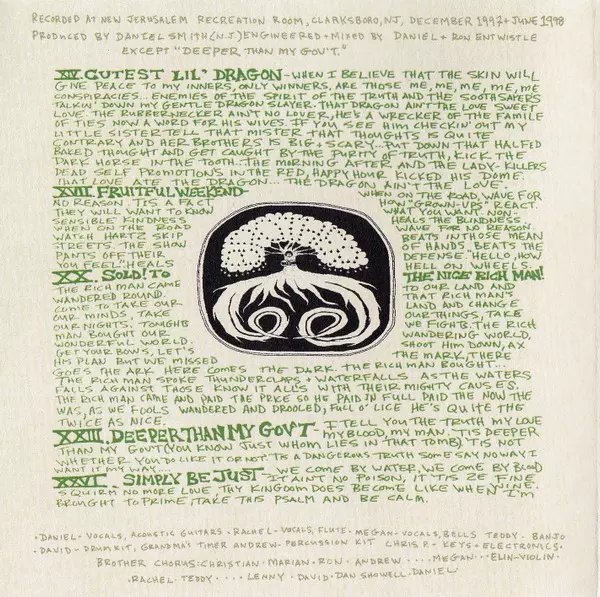 RECORDED AT NEW JERUSALEM RECREATION ROOM, CLARKSBORO, NJ, DECEMBER 1997 + JUNE 1998
PRODUCED BY DANIEL SMITH (N.J.) ENGINEERED + MIXED BY DANIEL + RON ENTWISTLE
EXCEPT "DEEPER THAN MY GOV'T."
XIV. CUTEST LIL' DRAGON - WHEN I BELIEVE THAT THE SKIN WILL
GIVE PEACE TO MY INNERS, ONLY WINNERS, ARE THOSE ME, ME, ME, ME, ME
CONSPIRACIES... ENEMIES OF THE SPIRIT OF THE TRUTH AND THE SOOTHSAYERS
TALKIN' DOWN MY GENTLE DRAGON SLAYER. THAT DRAGON AIN'T THE LOVE SWEET
LOVE THE RUBBERNECKER AIN'T NO LOVER, HE'S A WRECKER OF THE FAMILE
OF TIES NOW A WORD FOR HIS WIVES. IF YOU SEE HIM CHECKIN' OUT MY
LITTLE SISTER TELL THAT MISTER THAT THOUGHTS IS QUITE
CONTRARY AND HER BROTHERS IS BIG + SCARY... PUT DOWN THAT HALFED
BAKED THOUGHT AND GET CAUGHT BY THE PURITY OF TRUTH, KICK THE
DARK HORSE IN THE TOOTH... THE MORNING AFTER AND THE LADY-KILLERS
DEAD SELF PROMOTIONS IN THE RED, HAPPY HOUR KICKED HIS DOME.
THAT LOVE ATE THE DRAGON... THE DRAGON AIN'T THE LOVE.
XVII. FRUITFUL WEEKEND - WHEN ON THE ROAD, WAVE FOR
NO REASON. 'TIS A FACT HOW "GROWN-UPS" REACT.
THEY WILL WANT TO KNOW WHAT YOU WANT. NON
SENSIBLE KINDNESS HEALS THE BLINDNESS
WHEN ON THE ROAD WAVE FOR NO REASON.
WATCH HARTZ SKIP BEATS IN THOSE MEAN
STREETS. THE SHOW OF HANDS. BEATS THE
PANTS OFF THEIR DEFENSE. "HELLO, HOW
YOU FEEL" HEALS HELL ON WHEELS.
XX. SOLD! TO THE NICE RICH MAN!
THE RICH MAN CAME TO OUR LAND AND
WANDERED ROUND. THAT RICH MAN'S
COME TO TAKE OUR LAND AND CHANGE
OUR MINDS, TAKE OUR THINGS, TAKE
OUR NIGHTS. TONIGHT WE FIGHT. THE RICH
MAN BOUGHT OUR WANDERING WORLD,
WONDERFUL WORLD. SHOOT HIM DOWN, AX
GET YOUR BOWS, LET'S THE MARK, THERE
HIS PLAN BUT WE MISSED
GOES THE ARK HERE COMES THE DARK. THE RICH MAN BOUGHT...
THE RICH MAN SPOKE THUNDERCLAPS + WATERFALLS AS THE WATERS
FALLS AGAINST THOSE KNOW IT ALLS WITH THEIR MIGHTY CAUSES.
THE RICH MAN CAME AND PAID THE PRICE SO HE PAID IN FULL PAID THE NOW THE
WAS, AS WE FOOLS WANDERED AND DROOLED, FULL O' LICE HE'S QUITE THE
TWICE AS NICE.
XXIII. DEEPER THAN MY GOV'T - I TELL YOU THE TRUTH MY LOVE
MY BLOOD, MY MAN. 'TIS DEEPER
THAN MY GOV'T (YOU KNOW JUST WHOM LIES IN THAT TOMB) 'TIS NOT
WHETHER YOU DO LIKE IT OR NOT 'TIS A DANGEROUS TRUTH SOME SAY NO WAY I
WANT IT MY WAY.
XXVI. SIMPLY BE JUST - WE COME BY WATER, WE COME BY BLOOD
IT AIN'T NO POISON, IT 'TIS ZE FINE WINE.
SQUIRM NO MORE LOVE, THY KINGDOM DOES BE COME LIKE WHEN I'M
BROUGHT TO PRIME, TAKE THIS PSALM AND BE CALM.
• DANIEL - VOCALS, ACOUSTIC GUITARS • RACHEL - VOCALS, FLUTE • MEGAN - VOCALS, BELLS TEDDY • BANJO
• DAVID - DRUM KIT, GRANDMA'S TIMER ANDREW - PERCUSSION KIT CHRIS P. - KEYS + ELECTRONICS •
BROTHER CHORUS: CHRISTIAN • MARIAN • RON • ANDREW .... MEGAN ... ELIN - VIOLIN •
• RACHEL TEDDY .... LENNY • DAVID • DAN SHOWELL. DANIEL